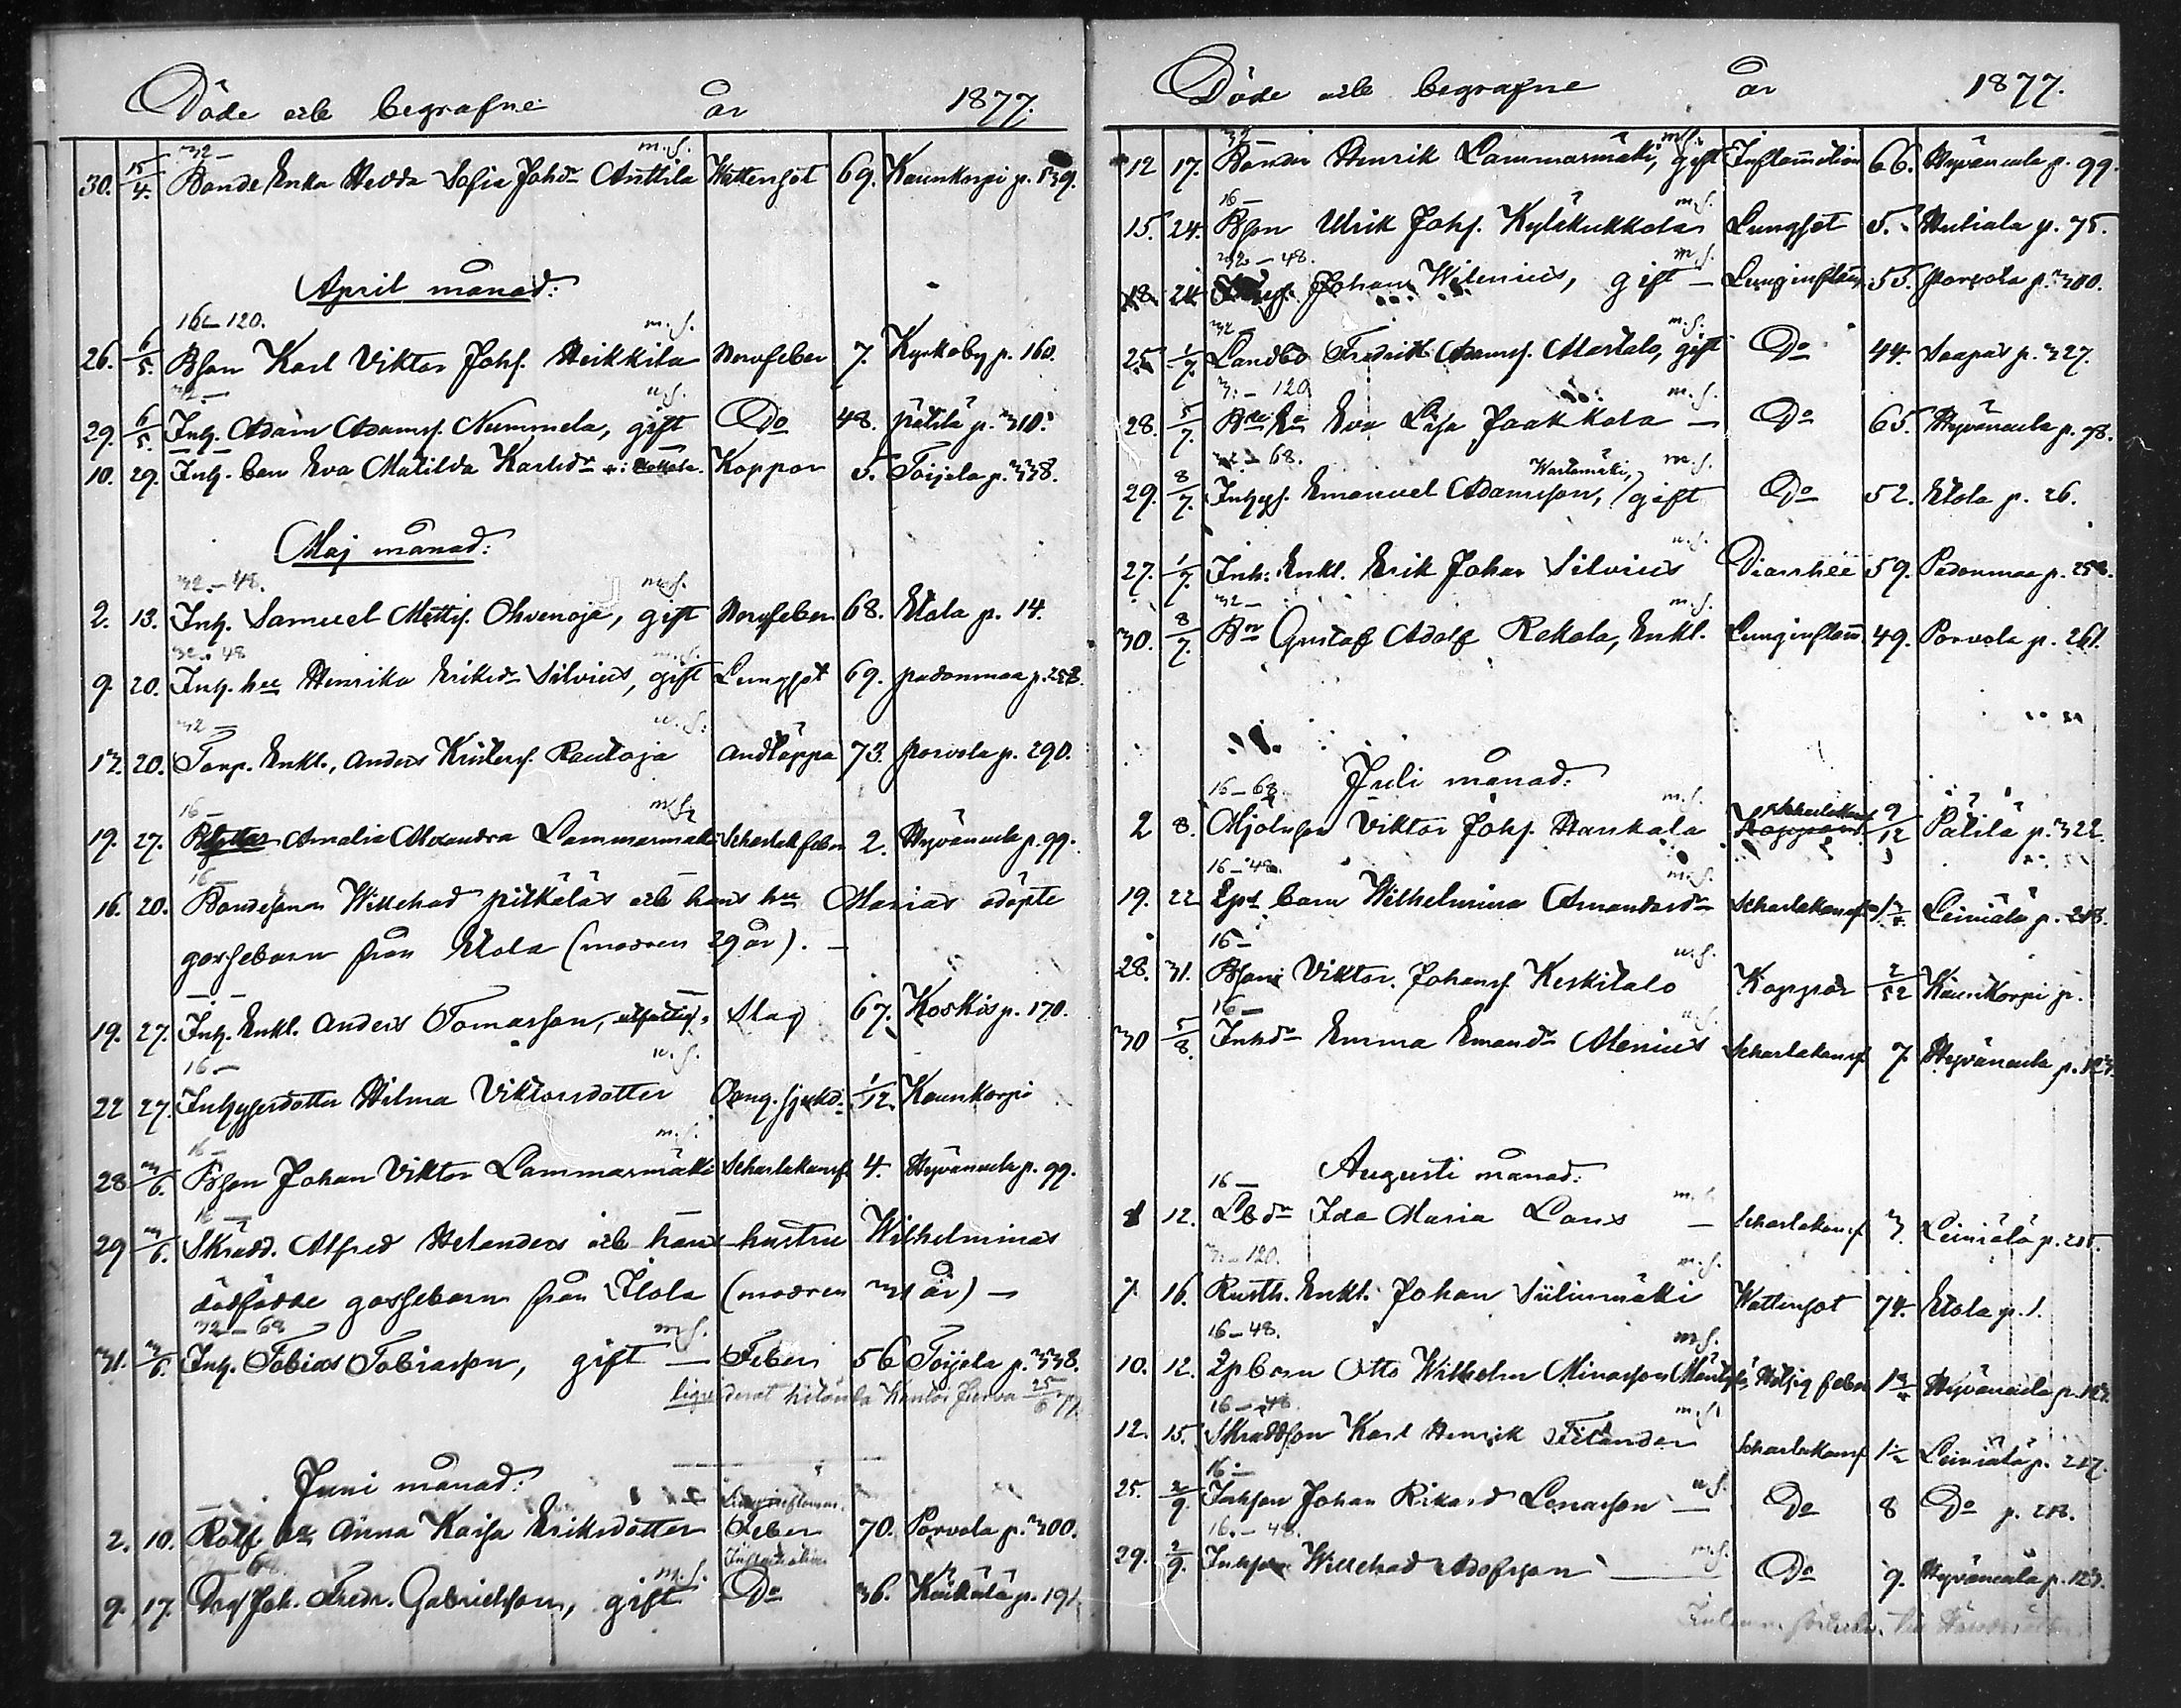 Döde och begrafne år 1877.
32 — m.s.
30. 15/4. Bonde Enka Hedda Sofia Johdr Anttila Wattensot 69. Kaunkorpi p. 539.
April månad:
16 — 120. m.s.
26. 6/5. Bson Karl Viktor Johs. Heikkilä Nervfeber 7. Kyrkoby p. 160.
32 — u.s.
29. 6/5. Inh. Adam Adamss. Nummela, gift Do 48. Pätilä p. 310.
10. 29. Inh. barn Eva Matilda Karlsdr Koppor 5. Toijola p. 338.
Maj månad:
32 — 48. m.s.
2. 13. Inh. Samuel Mattss. Ohvenoja, gift Nervfeber 68. Etola p. 14.
32 — 48 m.s.
9. 20. Inh. hu Henrika Eriksdr Silvius, gift Lungsot 69. Padonmaa p. 258.
32 — u.s.
13. 20. Torp. Enkl., Anders Kristers. Rautoja Andtäppa 73. Porvola p. 290.
16 — m.s.
19. 27. Bdotter Amalia Alexandra Lammasmäki Scharlakfeber 2. Hyvänaula p. 99.
16 —
16. 20. Bondesonen Willehad Pitkäläs och hans hu Marias odöpte
gossebarn från Etola (modren 29 år). —
19. 27. Inh. Enkl. Anders Tomasson, Slag 67. Koskis p. 170.
16 — u.s.
22 27. Inhysesdotter Hilma Viktorsdotter Oang. sjukd. 1/12. Kaunkorpi
16 — m.s.
28 3/6. Bson Johan Viktor Lammasmäki Scharlakansf. 4. Hyvänaula p. 99.
16 —
29 3/6. Skrädd. Alfred Helanders och hans hustru Wilhelminas
dödfödde gossebarn från Etola (modren 31 år) —
32 — 68 m.s.
31. 3/6. Inh. Tobias Tobiasson, gift — Feber 56 Toijola p. 338.
liqviderat Kantor 25/6 77.
Juni månad:
Lunginflamm.
2. 10. Rotf. Anna Kaisa Eriksdotter Feber 70. Porvola p. 300.
68. m.s. Inflammation
9. 17. Drg Joh. Fredr. Gabrielsson, gift Do 36. Kaikala p. 191.
Döde och begrafne år 1877.
32 m.s.
12 17. Bonden Henrik Lammasmäki, gift Inflammation 66. Hyvänaula p. 99.
16 — m.s.
15. 24. Bson Ulrik Johs. Kyläkukkola Lungsot 5. Hutiala p. 75.
32 — 48. m.s.
18. 24. Johan Wilenius, gift — Lunginflam 55. Porvola p. 300.
32 — m.s.
25 1/7. Landbo Fredrik Adamss. Alastalo, gift Do 44. Saapas p. 327.
3. — 120 m.s.
28. 5/7. Eva Lisa Jaakkola — Do 65. Hyvänaula p. 98.
32 — 68. Wartamäki, m.s.
29. 8/7. Inhyss. Emanuel Adamsson, gift Do 52. Etola p. 26.
u.s.
27. 1/7. Inh. Enkl. Erik Johan Silvius Diarrhée 59. Padonmaa p. 258.
32 — m.s.
30. 8/7. Bn Gustaf Adolf Rekola, Enkl. Lunginflam 49. Porvola p. 261.
Juli månad:
16 — 68 m.s. Scharlakansf
2 8. Mjölnson Viktor Johs. Harskala Koppor 9/12 Pätilä p. 322.
16 — 48. m.s.
19. 22 barn Wilhelmina Amandasdr Scharlakansf Leiniälä p. 218.
16 — u.s.
28. 31. Bson Viktor Johans. Keskitalo Koppor 2/52 Kaunkorpi p.
16 — u.s.
30 5/8. Inhdr Emma Emandr Alenius Scharlakansf 7. Hyvänaula p. 123.
Augusti månad:
16 — m.s.
1 12. Lbdr Ida Maria Laus — Scharlakansf 3. Leiniälä p. 215.
3. — 120. m.s.
7. 16. Rusth. Enkl. Johan Siilinmäki Wattensot 74. Etola p. 1.
16 — 48. m.s.
10. 12. barn Otto Wilhelm Minasson Hetsig feber Hyvänaula p. 123.
16 — 48. m.s.
12. 15. Skräddson Karl Henrik Felander Scharlakansf 1½ Leiniälä p. 217.
16 — u.s.
25. 2/9. Inhson Johan Rikard Lenasson — Do 8 Do p. 218.
16. — 48. m.s.
29. 2/9. Inhson Willehad Adofsson — Do 9. Hyvänaula p. 123.